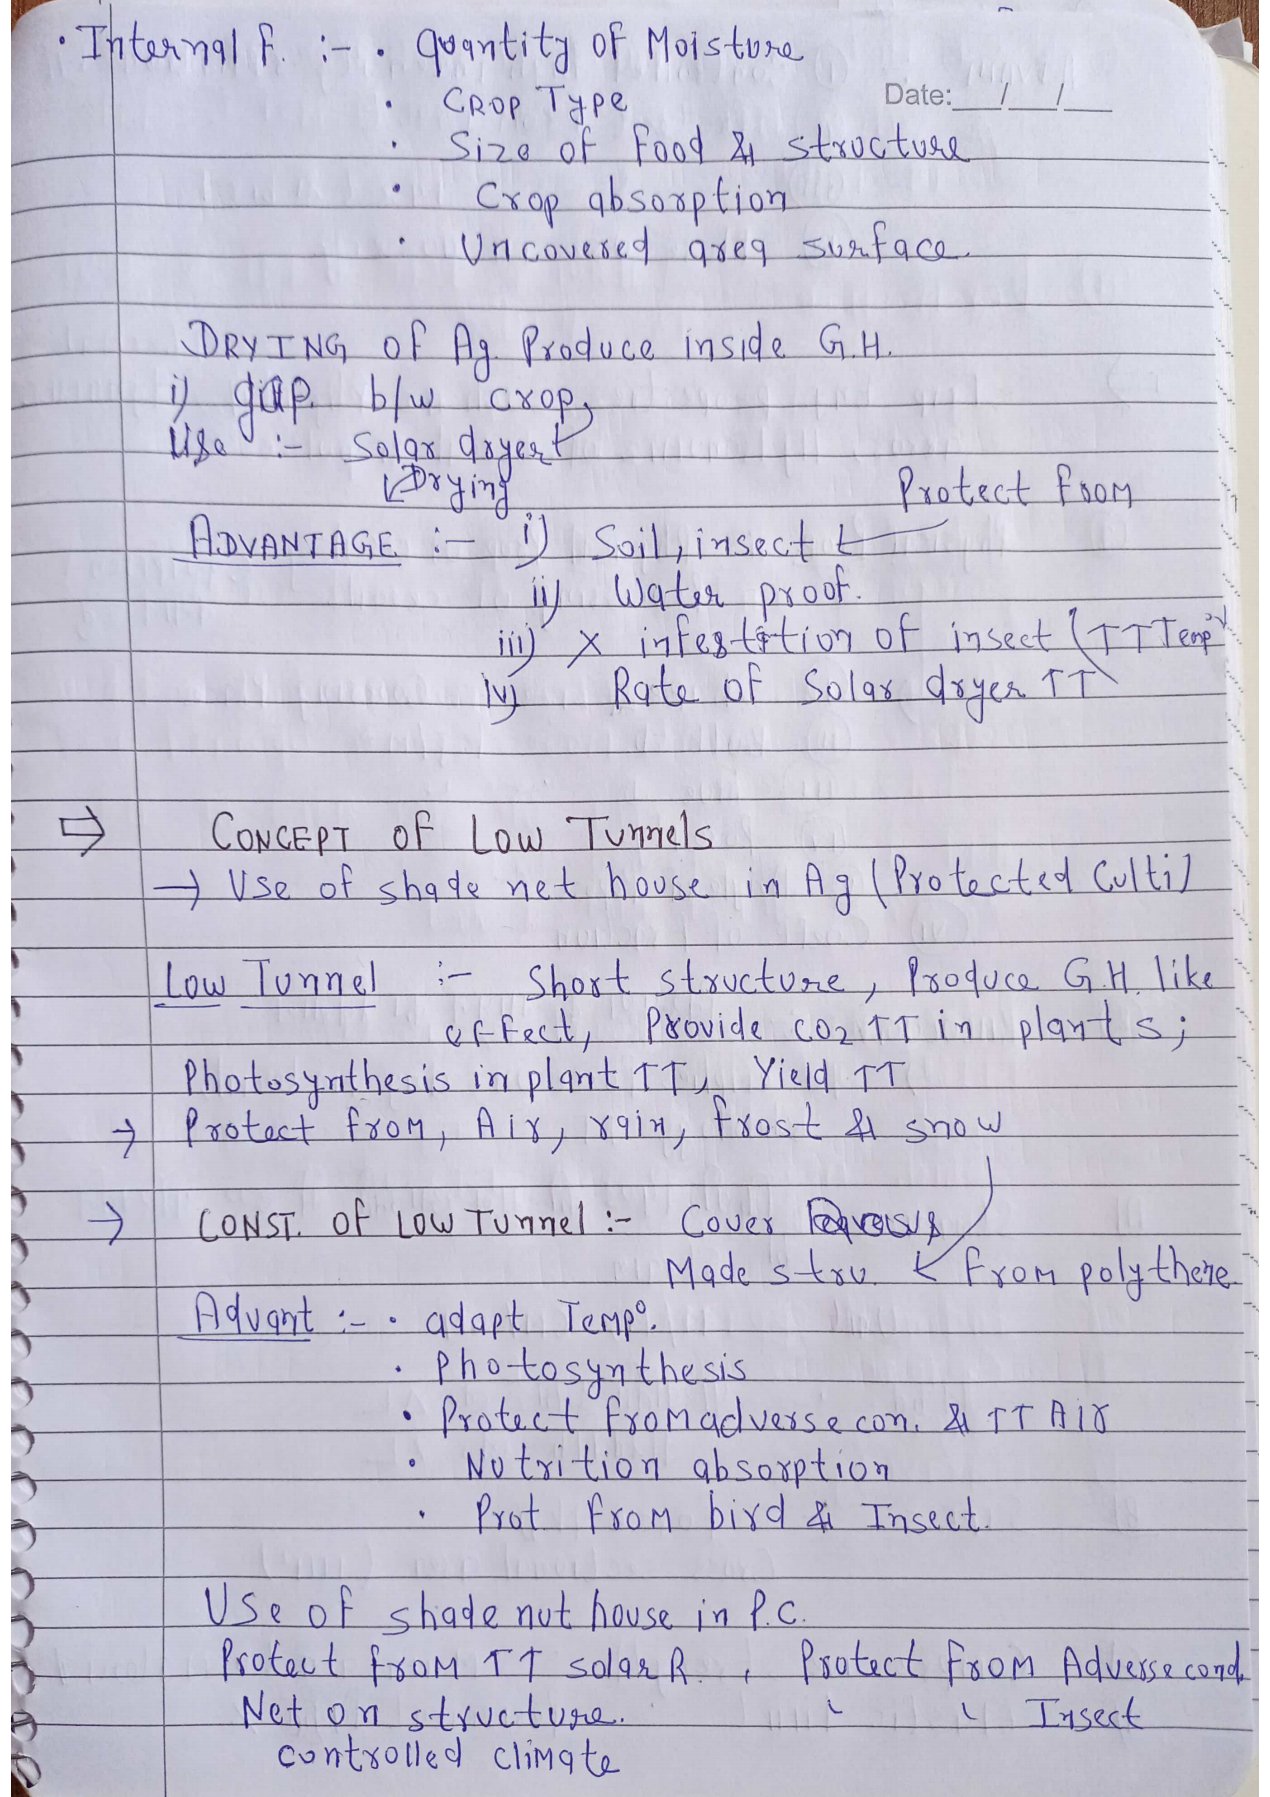 • Internal F. :- • Quantity of Moisture
Date:__/__/__
• CROP Type
• Size of Food & structure
• Crop absorption
• Uncovered area surface.
DRYING OF Ag. Produce inside G.H.
i) gap. b/w crop,
Use :- Solar dryer
Drying
Protect from
ADVANTAGE :- i) Soil, insect
ii) Water proof.
iii) X infestation of insect (↑↑ Temp
iv) Rate of Solar dryer ↑↑
⇒ CONCEPT OF LOW TUNNELS
→ Use of shade net house in Ag (Protected Culti)
Low Tunnel :- Short structure, Produce G.H. like
effect, Provide CO2 ↑↑ in plants;
Photosynthesis in plant ↑↑, Yield ↑↑
→ Protect from, Air, rain, frost & snow
→ CONST. OF LOW TUNNEL :- Cover
Made stru. ← from polythene
Advant :- • adapt Temp°.
• Photosynthesis
• Protect from adverse con. & ↑↑ Air
• Nutrition absorption
• Prot from bird & Insect.
Use of shade nut house in P.C.
Protect from ↑↑ solar R. , Protect from Adverse cond.
Net on structure. " " Insect
controlled climate